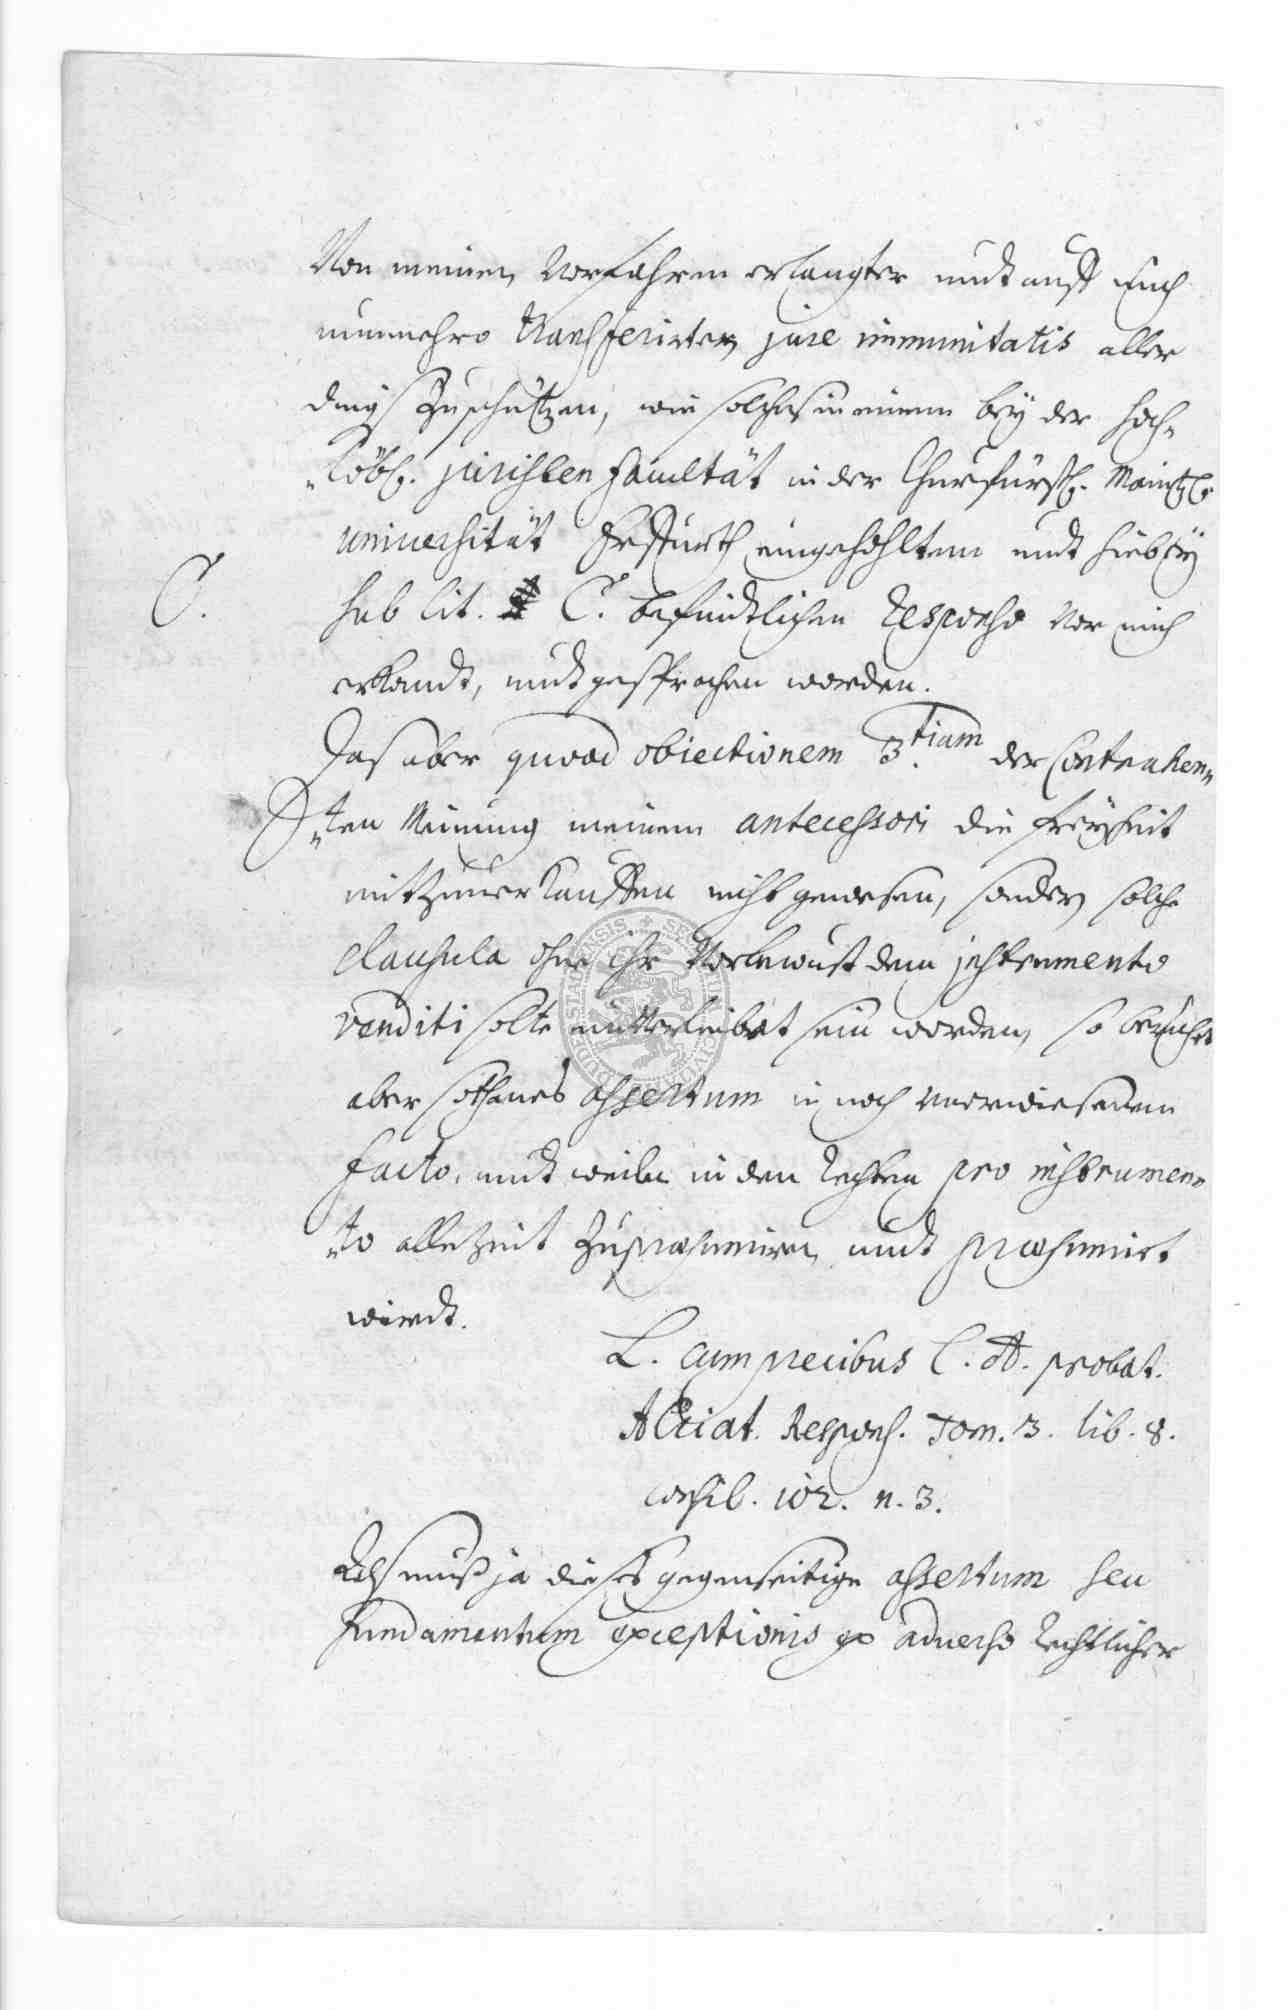 Von meinen Vorfahren erlangter undt auff Euch
nunmehro transferirten jure immunitatis aller
dings zuschützen, wie solches in einem bey der hoch„
„löbl. juristen facultät in der Churfürstl. Maintzl.
universität Erffurth eingehohltem undt hiebey
C.
sub lit. C. befindtlichen Responso vor mich
erkandt, undt gesprochen worden.
Das aber quoad obiectionem 3.tiam der Contrahen„
„ten Meinung meinem antecessori die freyheit
mit zu verkauffen nicht gewesen, sondern solche
clausula ohne ihr Vorbewust dem instrumento
venditi solte einverleibet sein worden, so beruhet
aber sothanes assertum in noch unerwiesenem
facto, undt weilen in den rechten pro instrumen„
„to allezeit zu præsumiren undt præsumirt
wirdt.
L. cum precibus C. de probat.
Alciat. Respons. Tom. 3. lib. 8.
consil. 102. n. 3.
Als muß ja dieses gegenseitige assertum seu
fundamentum exceptionis ex adverso rechtlicher
SIGILLUM CIVITATIS